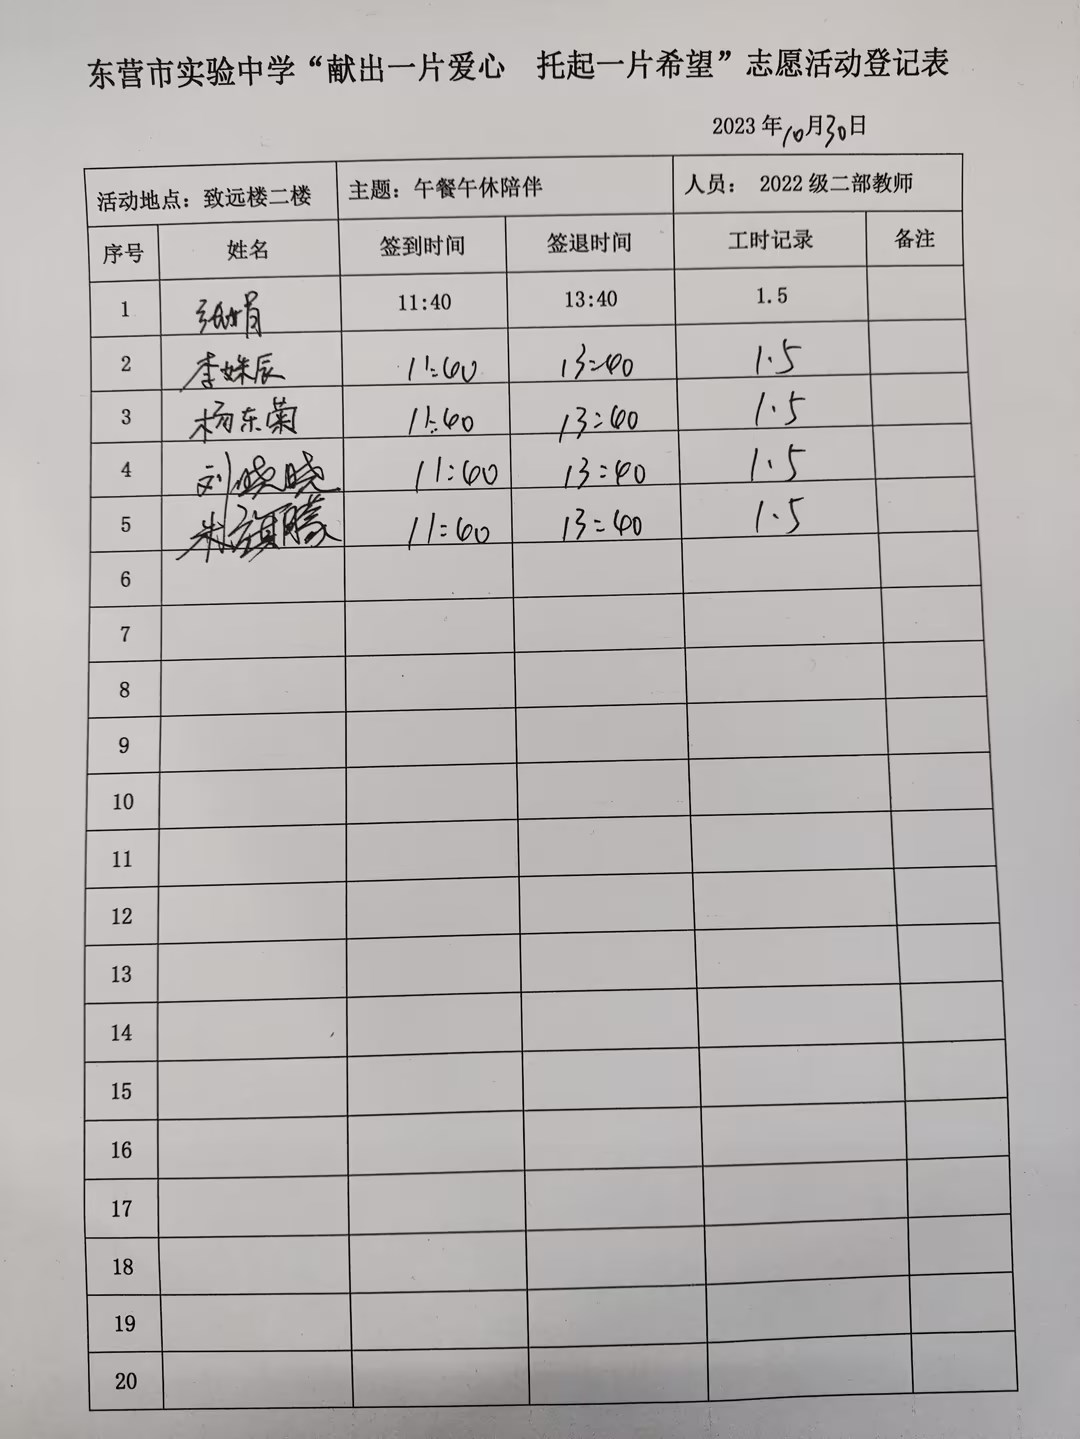 东营市实验中学“献出一片爱心 托起一片希望”志愿活动登记表
2023年10月30日
活动地点：致远楼二楼 主题：午餐午休陪伴 人员： 2022级二部教师
序号 姓名 签到时间 签退时间 工时记录 备注
1 张娟 11:40 13:40 1.5
2 李姝辰 11:40 13:40 1.5
3 杨东菊 11:40 13:40 1.5
4 刘晓晓 11:40 13:40 1.5
5 朱旗腾 11:40 13:40 1.5
6
7
8
9
10
11
12
13
14
15
16
17
18
19
20